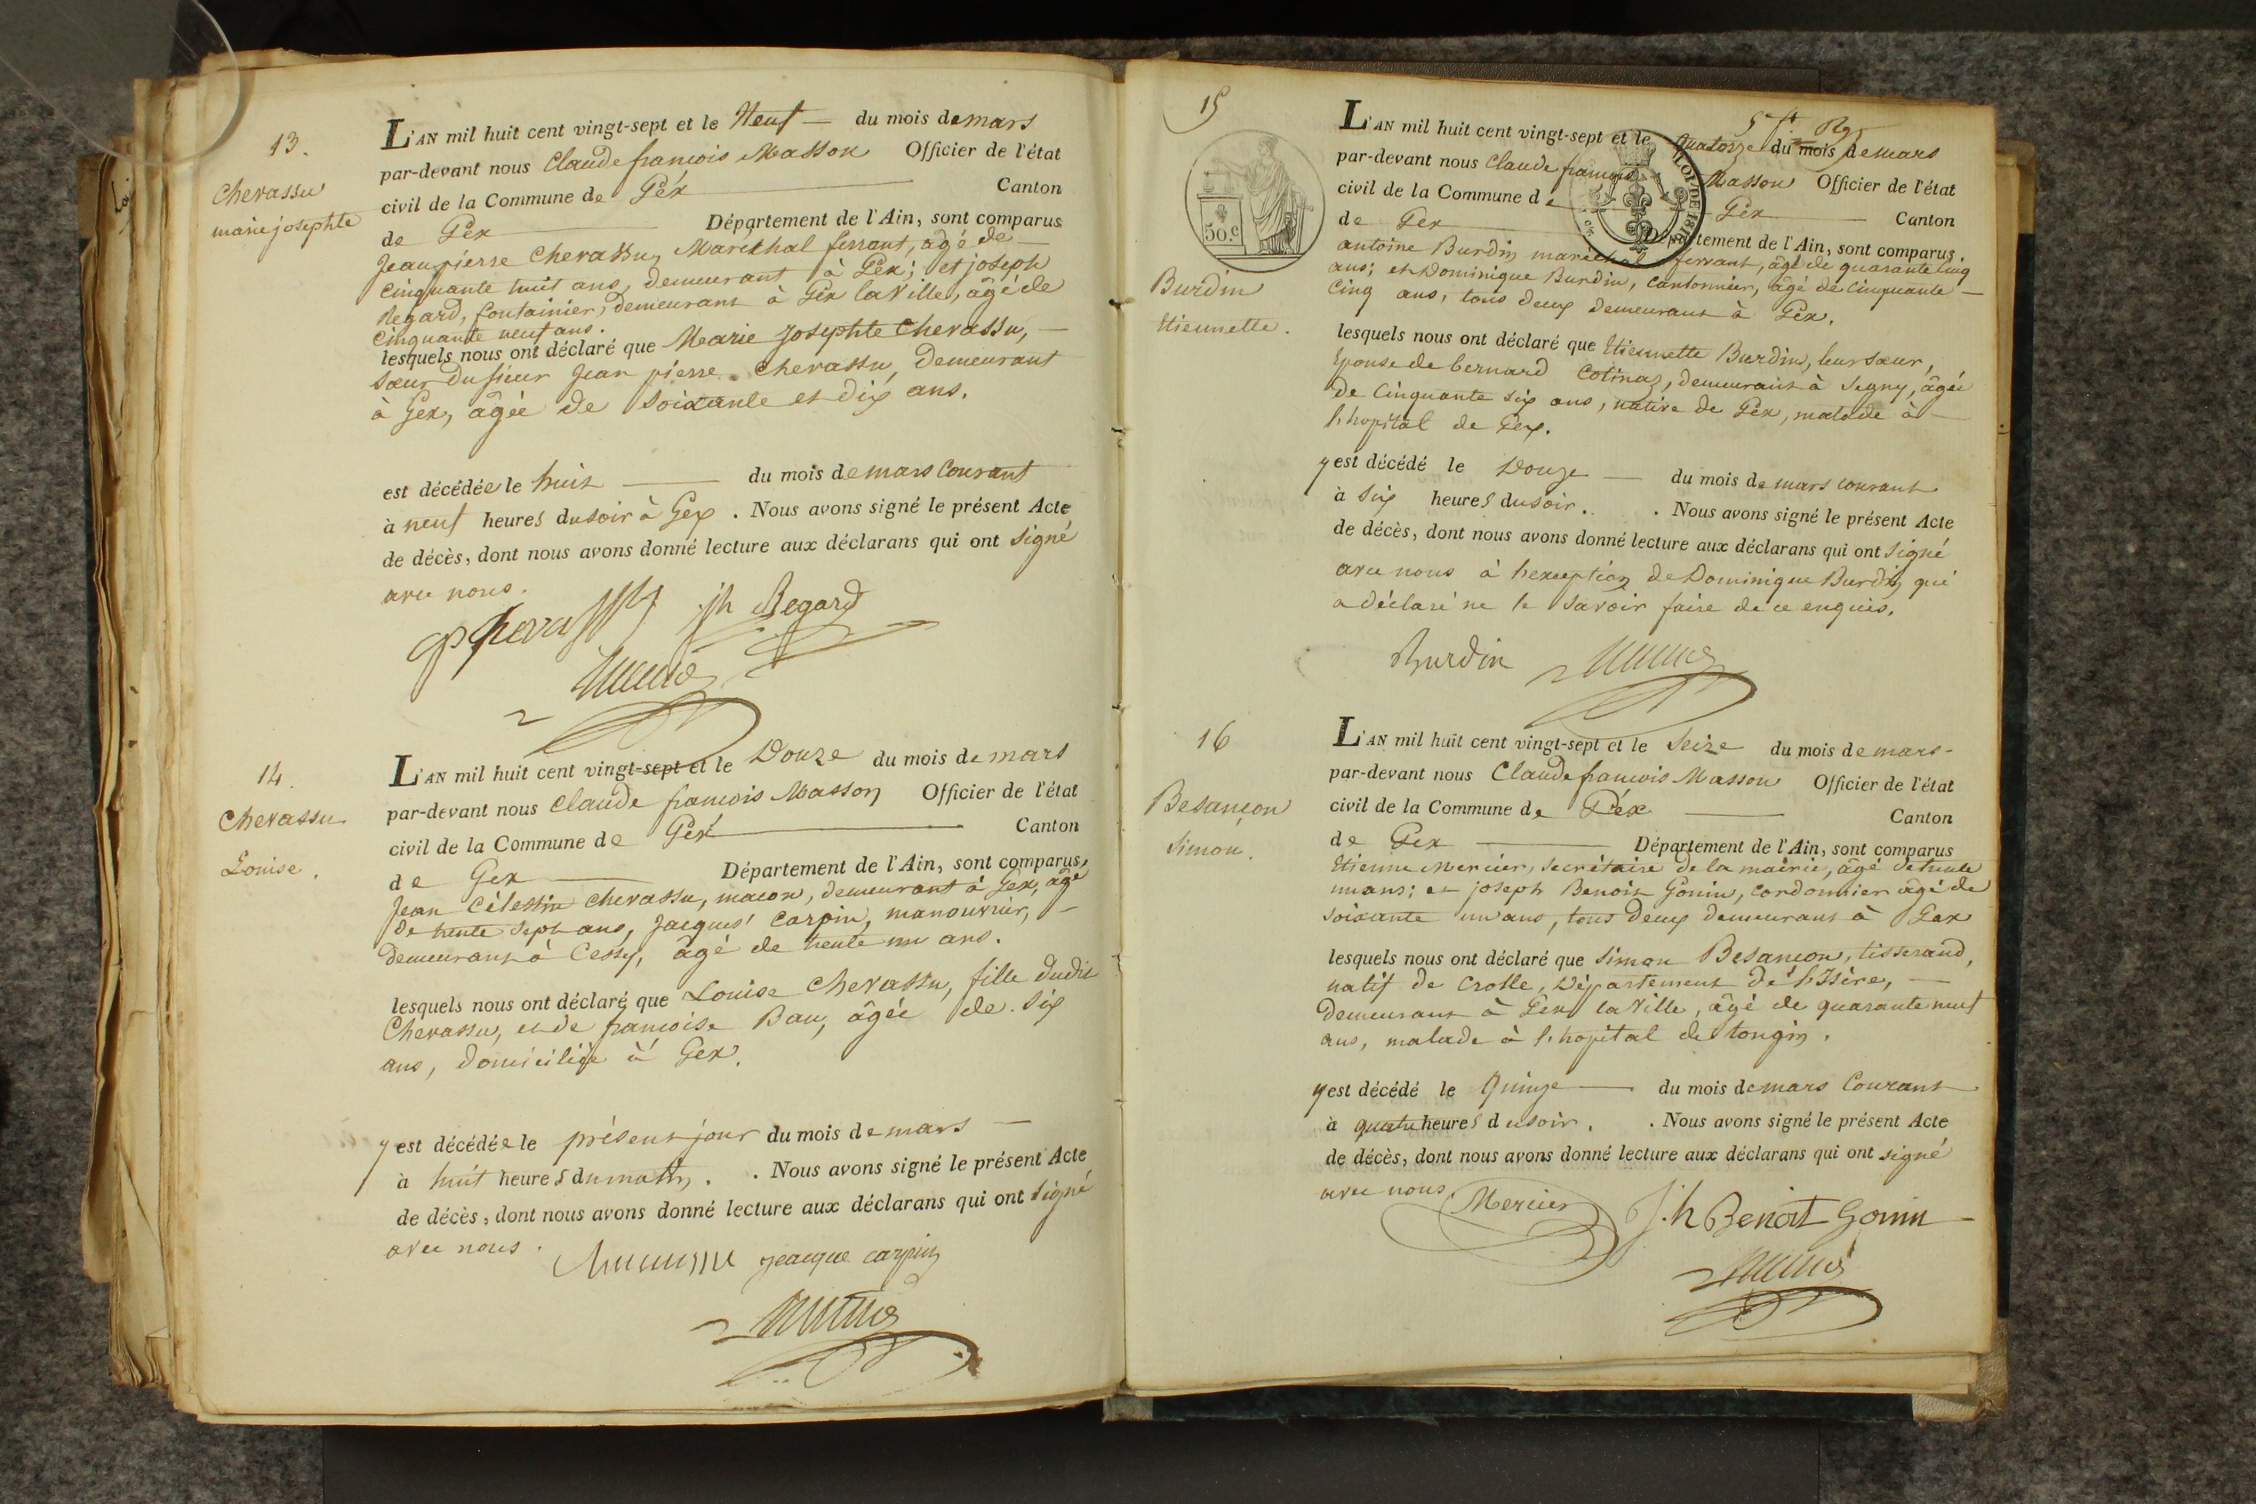 13.
Chevassu
marie josephte
L'AN mil huit cent vingt-sept et le Neuf — du mois de mars
par-devant nous Claude françois Masson Officier de l'état
civil de la Commune de Géx Canton
de Gex Département de l'Ain, sont comparus
Jean pierre Chevassu, Maréchal ferrant, âgé de
cinquante huit ans, demeurant à Gex; et joseph
Regard, fontainier, demeurant à Gex la Ville, âgé de
cinquante neuf ans.
lesquels nous ont déclaré que Marie Josephte Chevassu, —
sœur du sieur Jean pierre Chevassu, demeurant
à Gex, âgée de soixante et dix ans.
est décédée le huit — du mois de mars courant
à neuf heures du soir à Gex. Nous avons signé le présent Acte
de décès, dont nous avons donné lecture aux déclarans qui ont signé
avec nous.
jh Regard
14.
Chevassu
Louise.
L'AN mil huit cent vingt-sept et le Douze du mois de mars
par-devant nous Claude françois Masson Officier de l'état
civil de la Commune de Géx Canton
de Gex Département de l'Ain, sont comparus
Jean Célestin Chevassu, macon, demeurant à Gex, âgé
de trente sept ans, Jacques Carpin, manouvrier, —
demeurant à Cessy, âgé de trente un ans.
lesquels nous ont déclaré que Louise Chevassu, fille dudit
Chevassu, et de françoise Bau, âgée de six
ans, domiciliée à Gex.
y est décédée le présent jour du mois de mars —
à huit heures du matin. . Nous avons signé le présent Acte
de décès, dont nous avons donné lecture aux déclarans qui ont signé
avec nous.
jeacque carpin
15
50.c
LOI DE 1816
Burdin
Etiennette.
L'AN mil huit cent vingt-sept et le Quatorze du mois de mars
par-devant nous Claude françois Masson Officier de l'état
civil de la Commune de Gex Canton
de Gex Département de l'Ain, sont comparus.
antoine Burdin marechal ferrant, âgé de quarante cinq
ans; et Dominique Burdin, cantonnier, âgé de cinquante —
cinq ans, tous deux demeurant à Gex.
lesquels nous ont déclaré que Etiennette Burdin, leur sœur,
Epouse de bernard Cotinaz, demeurant à Segny, âgée
de cinquante six ans, native de Gex, malade à —
l'hopital de Gex.
y est décédé le Douze — du mois de mars courant
à six heures du soir. . Nous avons signé le présent Acte
de décès, dont nous avons donné lecture aux déclarans qui ont signé
avec nous à l'exception de Dominique Burdin qui
a déclaré ne le savoir faire de ce enquis.
Burdin
16
Besançon
Simon.
L'AN mil huit cent vingt-sept et le Seize du mois de mars-
par-devant nous Claude françois Masson Officier de l'état
civil de la Commune de Géx Canton
de Gex Département de l'Ain, sont comparus
Etienne Mercier, secrétaire de la mairie, âgé de trente
un ans; et joseph Benoit Gonin, cordonnier âgé de
soixante un ans, tous deux demeurant à Gex
lesquels nous ont déclaré que Simon Besançon, tisserand,
natif de Crolle, Département de l'Isère, —
demeurant à Gex la Ville, âgé de quarante neuf
ans, malade à l'hopital de tougin.
y est décédé le Quinze — du mois de mars Courant
à quatre heures du soir. . Nous avons signé le présent Acte
de décès, dont nous avons donné lecture aux déclarans qui ont signé
avec nous
Mercier J.h Benoit Gonin